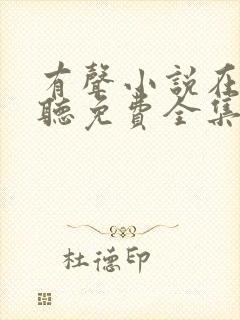 有聲小說在
聽免費全集
杜德印